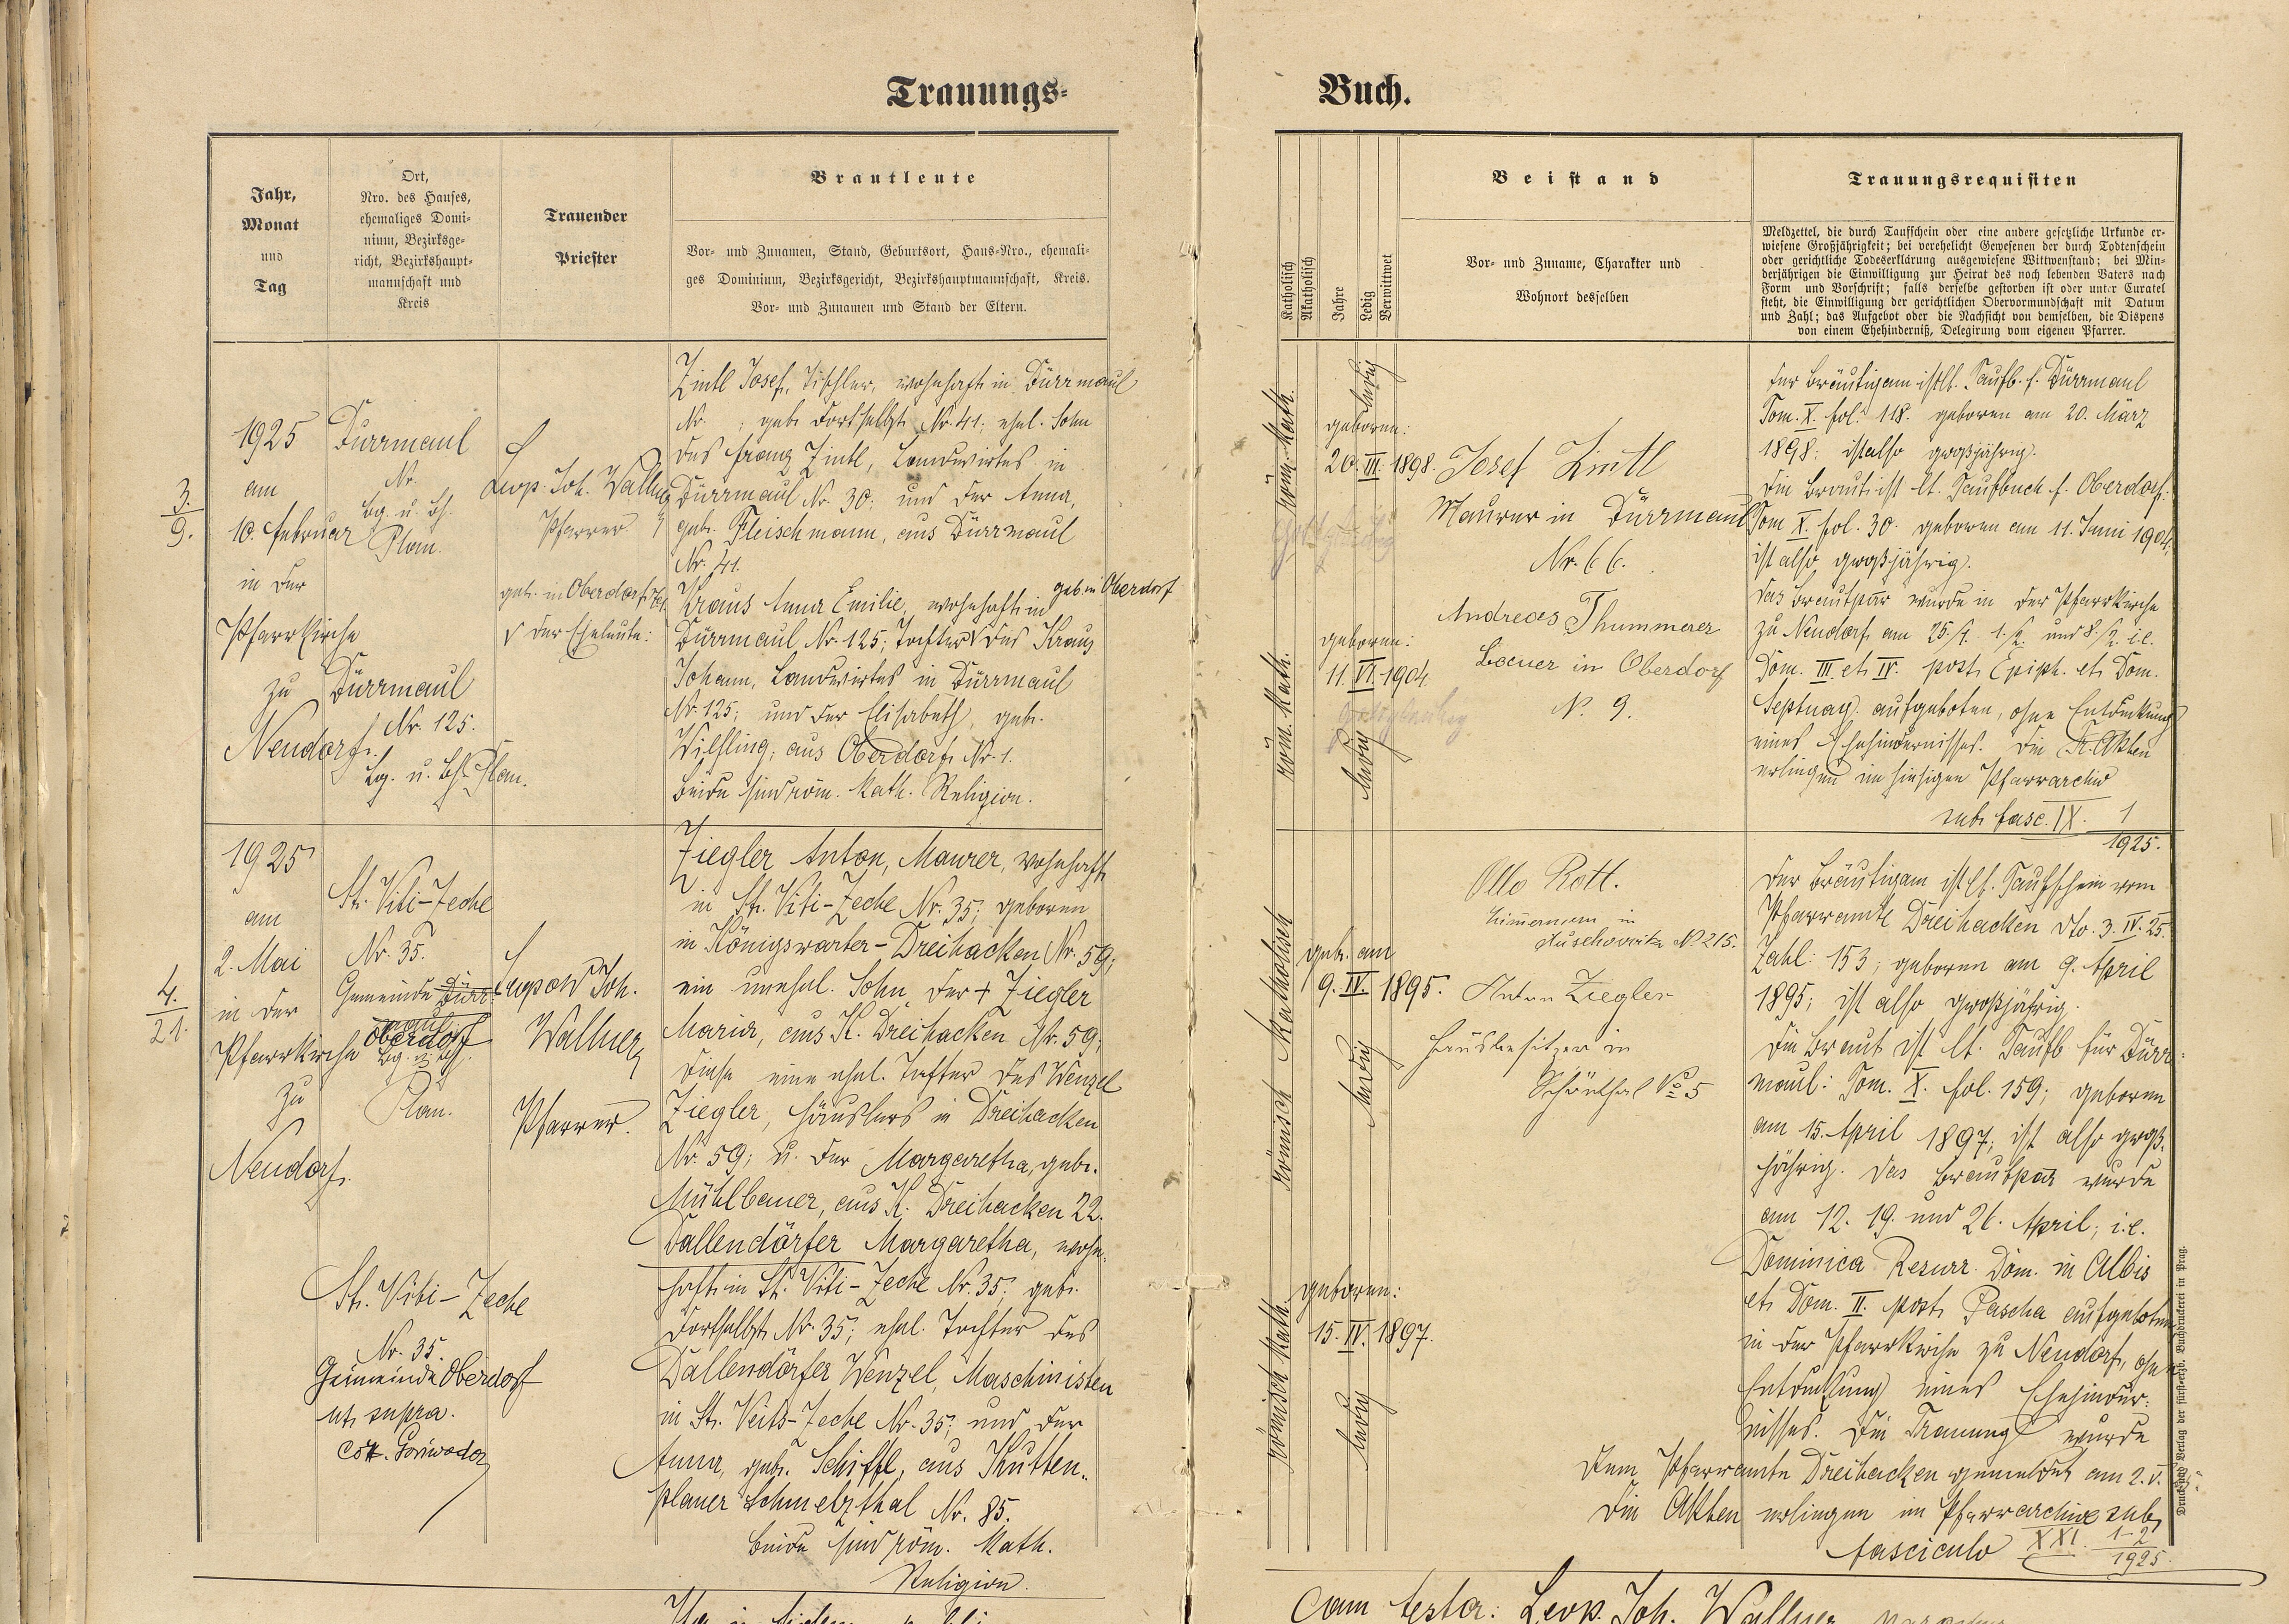 Trauungs-
Buch.
Jahr,
Monat
und
Tag
Ort,
Nro. des Hauses,
ehemaliges Domi-
nium, Bezirksge-
richt, Bezirkshaupt-
mannschaft und
Kreis
Trauender
Priester
Brautleute
Vor- und Zunamen, Stand, Geburtsort, Haus-Nro., ehemali-
ges Dominium, Bezirksgericht, Bezirkshauptmannschaft, Kreis.
Vor- und Zunamen und Stand der Eltern.
Katholisch
Akatholisch
Jahre
Ledig
Verwittwet
Beistand
Vor- und Zuname, Charakter und
Wohnort desselben
Trauungsrequisiten
Meldzettel, die durch Taufschein oder eine andere gesetzliche Urkunde er-
wiesene Großjährigkeit; bei verehelicht Gewesenen der durch Todtenschein
oder gerichtliche Todeserklärung ausgewiesene Wittwenstand; bei Min-
derjährigen die Einwilligung zur Heirat des noch lebenden Vaters nach
Form und Vorschrift; falls derselbe gestorben ist oder unter Curatel
steht, die Einwilligung der gerichtlichen Obervormundschaft mit Datum
und Zahl; das Aufgebot oder die Nachsicht von demselben, die Dispens
von einem Ehehinderniß, Delegirung vom eigenen Pfarrer.
3.
9.
1925
am
10. Februar
in der
Pfarrkirche
zu
Neudorf.
Dürrmaul
Nr.
Bg. u. Bh.
Plan.
Dürrmaul
Nr. 125.
Bg. u. Bh. Plan.
Leop. Joh. Wallner
Pfarrer
geb. in Oberdorf
√ der Eheleute:
Zintl Josef, Tischler, wohnhaft in Dürrmaul
Nr. ; geb. dortselbst Nr. 41; ehel. Sohn
des Franz Zintl, Landwirtes in
Dürrmaul Nr. 30; und der Anna,
geb. Fleischmann, aus Dürrmaul
Nr. 41.
geb. in Oberdorf
Kraus Anna Emilie, wohnhaft in
Dürrmaul Nr. 125; Tochter √ des Kraus
Johann, Landwirtes in Dürrmaul
Nr. 125; und der Elisabeth, geb.
Wilfling, aus Oberdorf Nr. 1.
Beide sind röm. kath. Religion.
röm. kath.
ledig
geboren:
20. III. 1898.
geboren:
11. VI. 1904
röm. kath.
ledig
Josef Zintl
Maurer in Dürrmaul
Nr. 66.
Andreas Thummerer
Bauer in Oberdorf
N. 9.
Der Bräutigam ist lt. Taufb. f. Dürrmaul
Tom. X. fol. 118. geboren am 20. März
1898; ist also großjährig.
Die Braut ist lt. Taufbuch f. Oberdorf:
Tom X. fol. 30. geboren am 11. Juni 1904;
ist also großjährig.
Das Brautpar wurde in der Pfarrkirche
zu Neudorf am 25./1. 1./2. und 8./2. i.e.
Dom. III. et IV. post Epiph. et Dom.
Septuag. aufgeboten, ohne Entdeckung
eines Ehehindernisses. Die Tr. Akten
erliegen im hiesigen Pfarrarchiv
sub fasc. IX. 1
1925.
4.
21.
1925
am
2. Mai
in der
Pfarrkirche
zu
Neudorf.
St. Viti-Zeche
Nr. 35.
Gemeinde Dürr
maul
Oberdorf
Bg. u. Bh.
Plan.
St. Viti-Zeche
Nr. 35.
Gemeinde Oberdorf
ut supra.
Leopold Joh.
Wallner,
Pfarrer.
Ziegler Anton, Maurer, wohnhaft
in St. Viti-Zeche Nr. 35; geboren
in Königswarter-Dreihacken Nr. 59;
ein unehel. Sohn der + Ziegler
Maria, aus K. Dreihacken Nr. 59;
diese eine ehel. Tochter des Wenzel
Ziegler, Häuslers in Dreihacken
Nr. 59; u. der Margaretha, geb.
Mühlbauer, aus K. Dreihacken 22.
Dallendörfer Margaretha, wohn-
haft in St. Viti-Zeche Nr. 35; geb.
dortselbst Nr. 35; ehel. Tochter des
Dallendörfer Wenzel, Maschinisten
in St. Veits-Zeche Nr. 35; und der
Anna, geb. Schiffl, aus Kutten-
planer Schmelzthal Nr. 85.
Beide sind röm. kath.
Religion.
römisch katholisch
geb. am
9. IV. 1895.
ledig
römisch kath.
geboren:
15. IV. 1897.
ledig
Otto Rott.
in
Kuschowitz No 215.
Anton Ziegler
Hausbesitzer in
Schönthal No 5
Der Bräutigam ist lt. Taufschein vom
Pfarramte Dreihacken dto. 3. IV. 25.
Zahl: 153; geboren am 9. April
1895; ist also großjährig.
Die Braut ist lt. Taufb für Dürr-
maul: Tom. X. fol. 159; geboren
am 15. April 1897; ist also groß-
jährig. Das Brautpar wurde
am 12. 19. und 26. April; i.e.
Dominica Resurr. Dom. in Albis
et Dom. II. post Pascha aufgeboten
in der Pfarrkirche zu Neudorf, ohne
Entdeckung eines Ehehinder-
nisses. Die Trauung wurde
dem Pfarramte Dreihacken gemeldet am 2. V.
Die Akten erliegen im Pfarrarchive sub
fasciculo XXI. 1-2
1925.
Druck und Verlag der fürst-erzb. Buchdruckerei in Prag.
Leop. Joh. Wallner